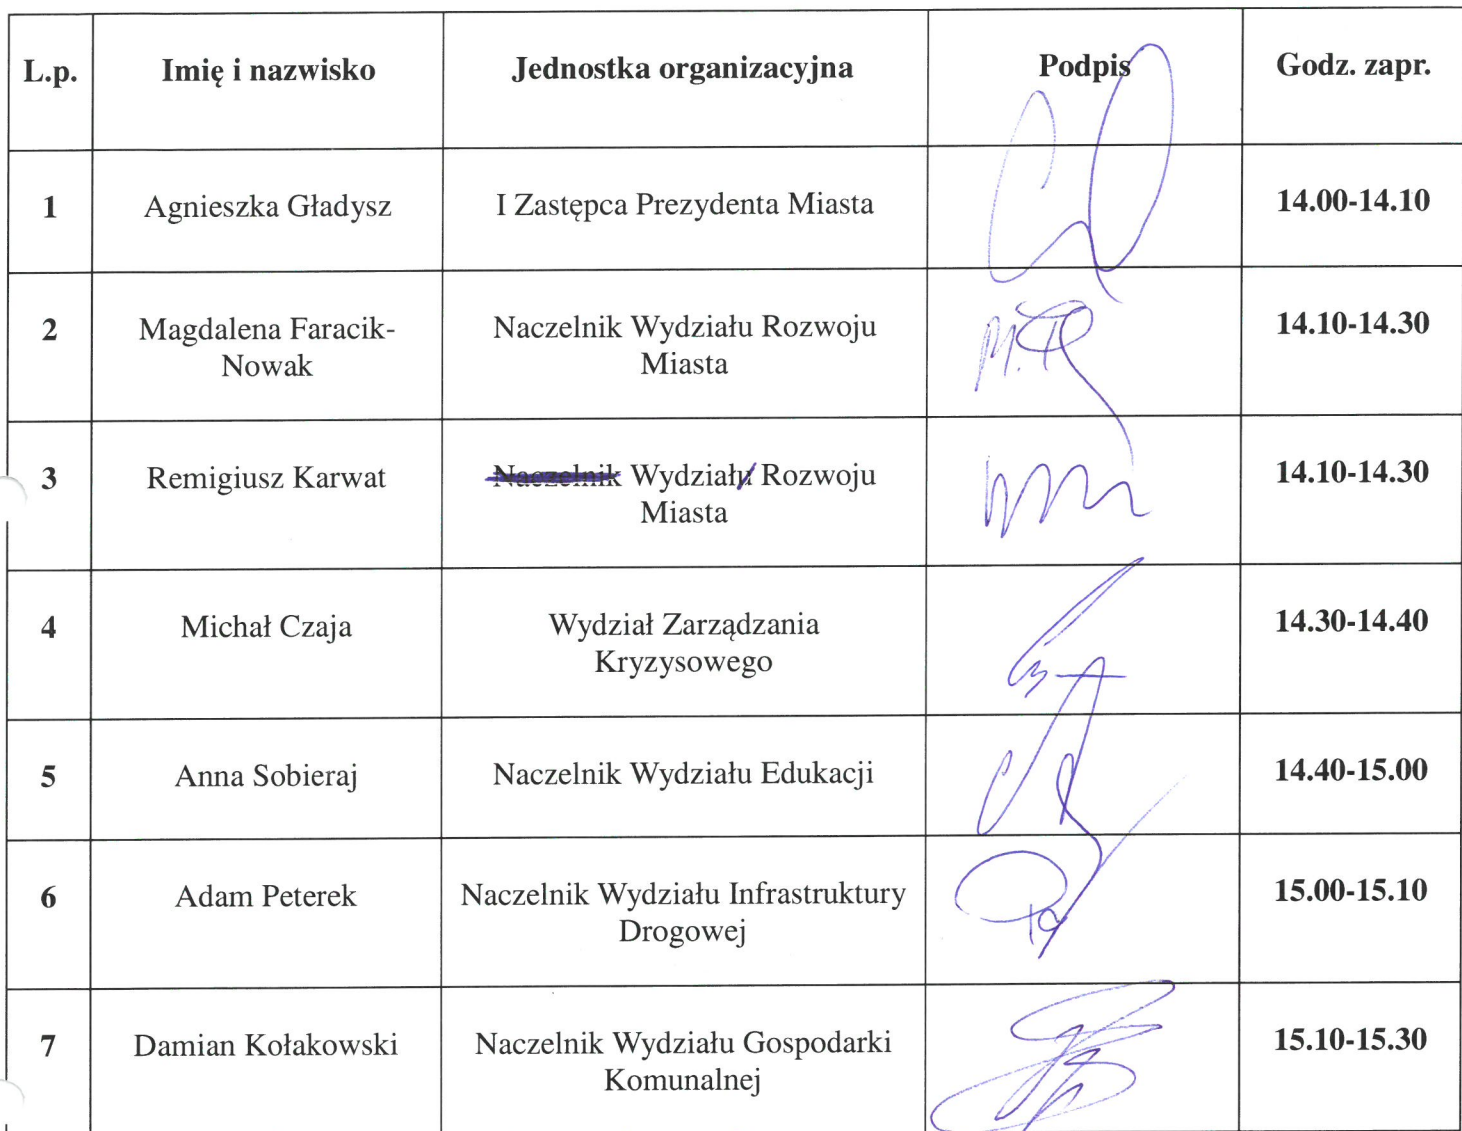 L.p. Imię i nazwisko Jednostka organizacyjna Podpis Godz. zapr.
1 Agnieszka Gładysz I Zastępca Prezydenta Miasta 14.00-14.10
2 Magdalena Faracik- Naczelnik Wydziału Rozwoju 14.10-14.30
Nowak Miasta
3 Remigiusz Karwat Naczelnik Wydziału Rozwoju 14.10-14.30
Miasta
4 Michał Czaja Wydział Zarządzania 14.30-14.40
Kryzysowego
5 Anna Sobieraj Naczelnik Wydziału Edukacji 14.40-15.00
6 Adam Peterek Naczelnik Wydziału Infrastruktury 15.00-15.10
Drogowej
7 Damian Kołakowski Naczelnik Wydziału Gospodarki 15.10-15.30
Komunalnej